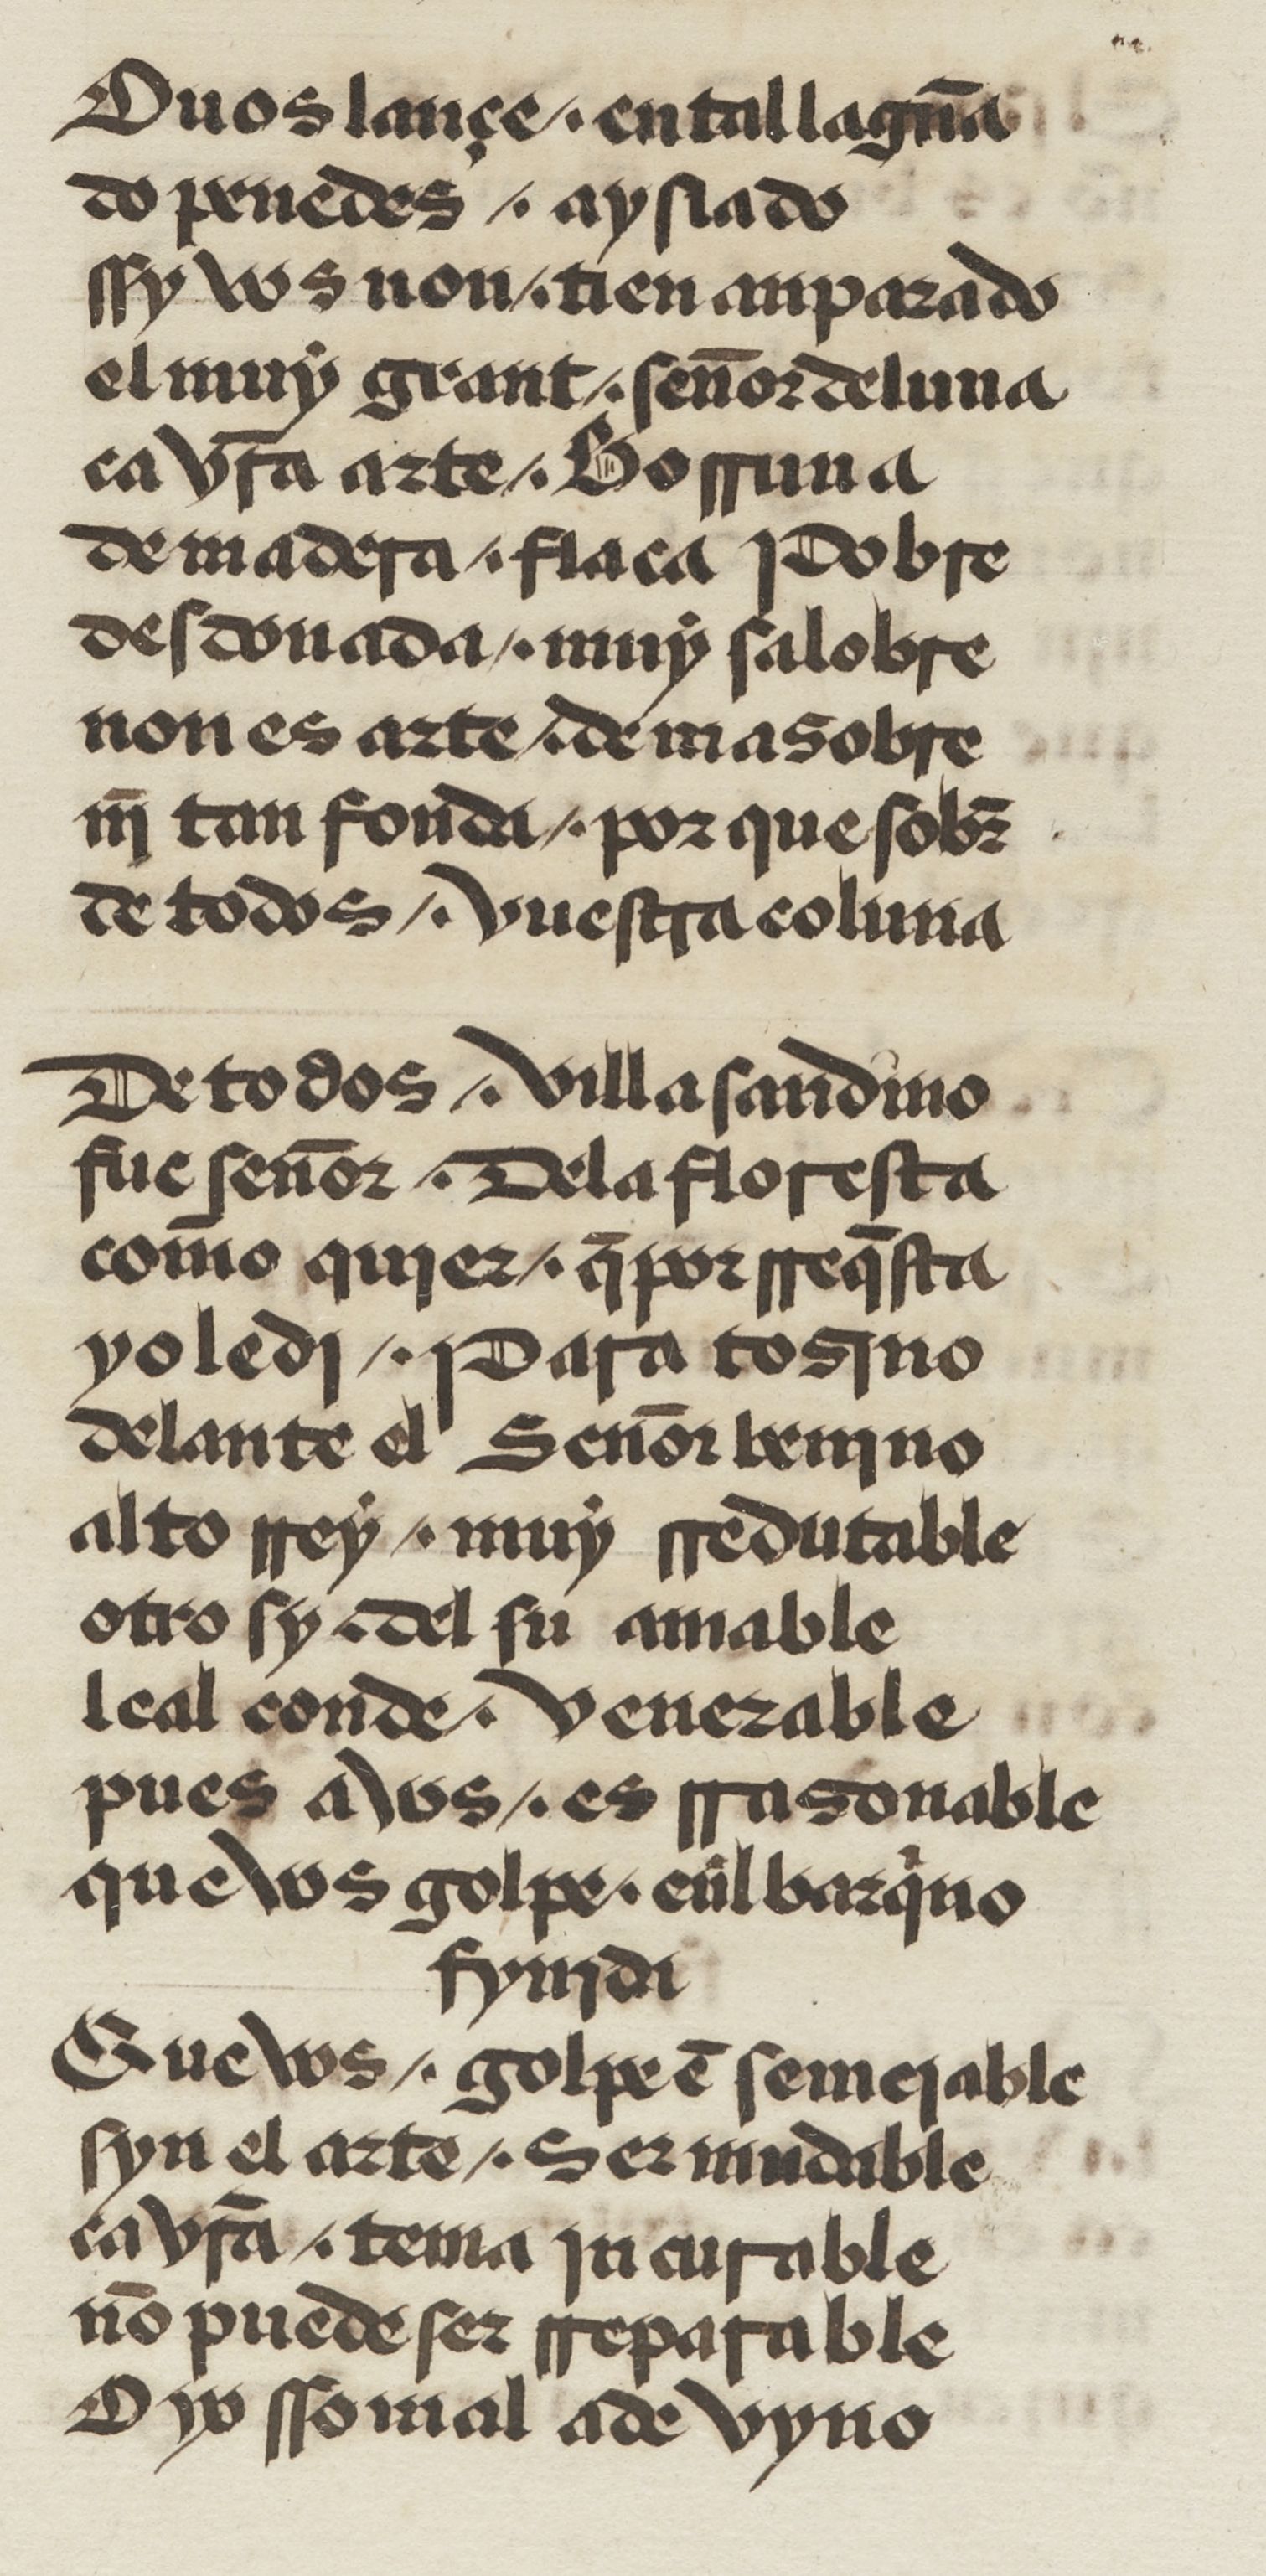 O uos lançe /. en tal laguña
do penedes /. ay siado
ssy vos non /. tien anparado
el muẏ grant /. señor de luna
ca vr̄a arte /. Bo rruna
de madera /. flaca Pobre
desdonada /. muẏ salobre
non es arte /. de masobre
nj̄ tan fonda /. por que sobr̄
de todos /. vuestra coluna
De todos /. villasandino
fue señor /. De la floresta
com̄o qujer /. q̄ por rreq̄sta
yo le dj /. Para tosino
delante el Señor benjno
alto rreẏ /. muẏ rredutable
otro sy /. del su amable
leal conde /. venerable
pues a vos /. es rrasonable
que vos golpe /. en̄l barqⁱno
fynjda
Que vos /. golpe ē semejable
syn el arte /. Ser mudable
ca vr̄a /. tema jncurable
nō puede ser rreparable
O yo sso mal adevyno